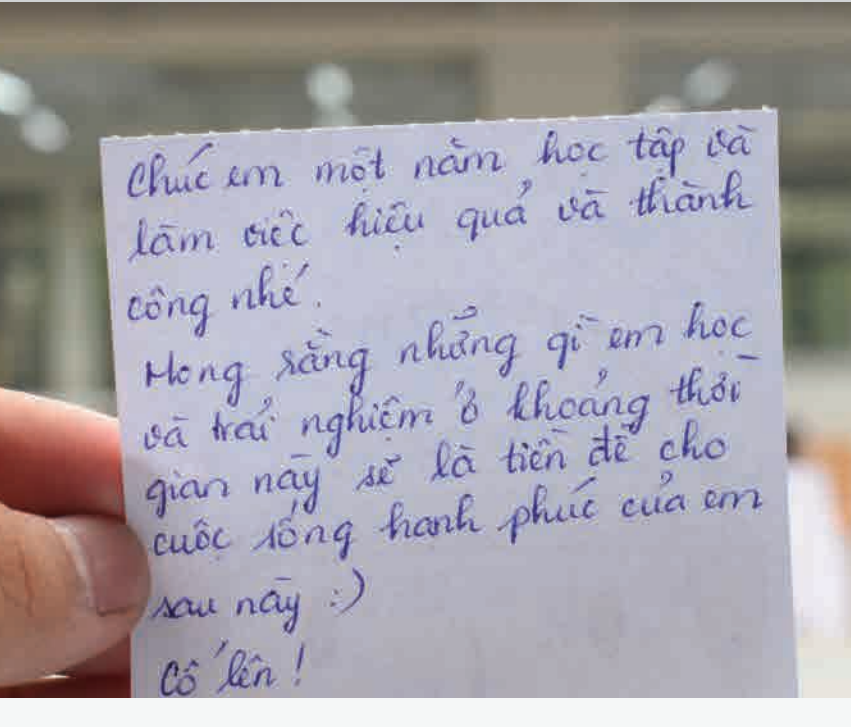 Chúc em một năm học tập và
làm việc hiệu quả và thành
công nhé.
Mong rằng những gì em học
và trải nghiệm ở khoảng thời
gian này sẽ là tiền đề cho
cuộc sống hạnh phúc của em
sau này :)
Cố lên!